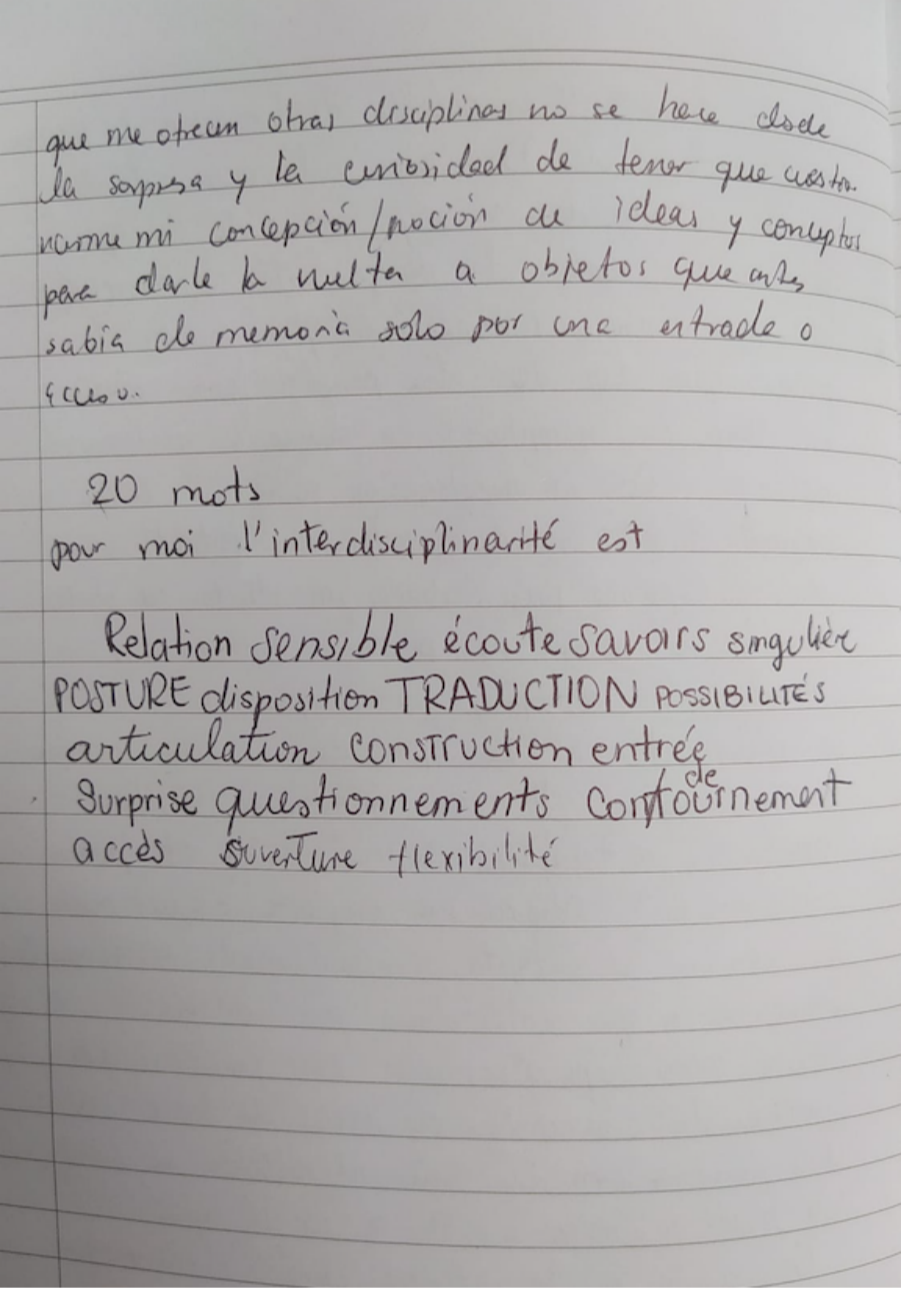 que me ofrecen otras disciplinas no se hace desde
la sorpresa y la curiosidad de tener que cuestio-
narme mi concepción/noción de ideas y conceptos
para darle la vuelta a objetos que antes
sabía de memoria solo por una entrada o
acceso.
20 mots
pour moi l'interdisciplinarité est
Relation sensible écoute savoirs singulière
POSTURE disposition TRADUCTION POSSIBILITÉS
articulation construction entrée
de
Surprise questionnements contournement
accès ouverture flexibilité